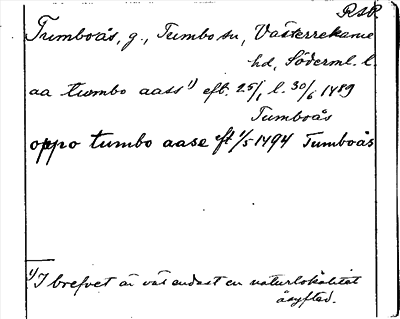 RAP.
Tumboås, g., Tumbo sn, Västerrekarne
hd, Söderml. l.
aa tumbo aass¹⁾ eft. 25/1 l. 30/6 1489
Tumboås
oppo tumbo aase eft 1/5 1494 Tumboås
¹⁾ I brefvet är väl endast en naturlokalitet
åsyftad.